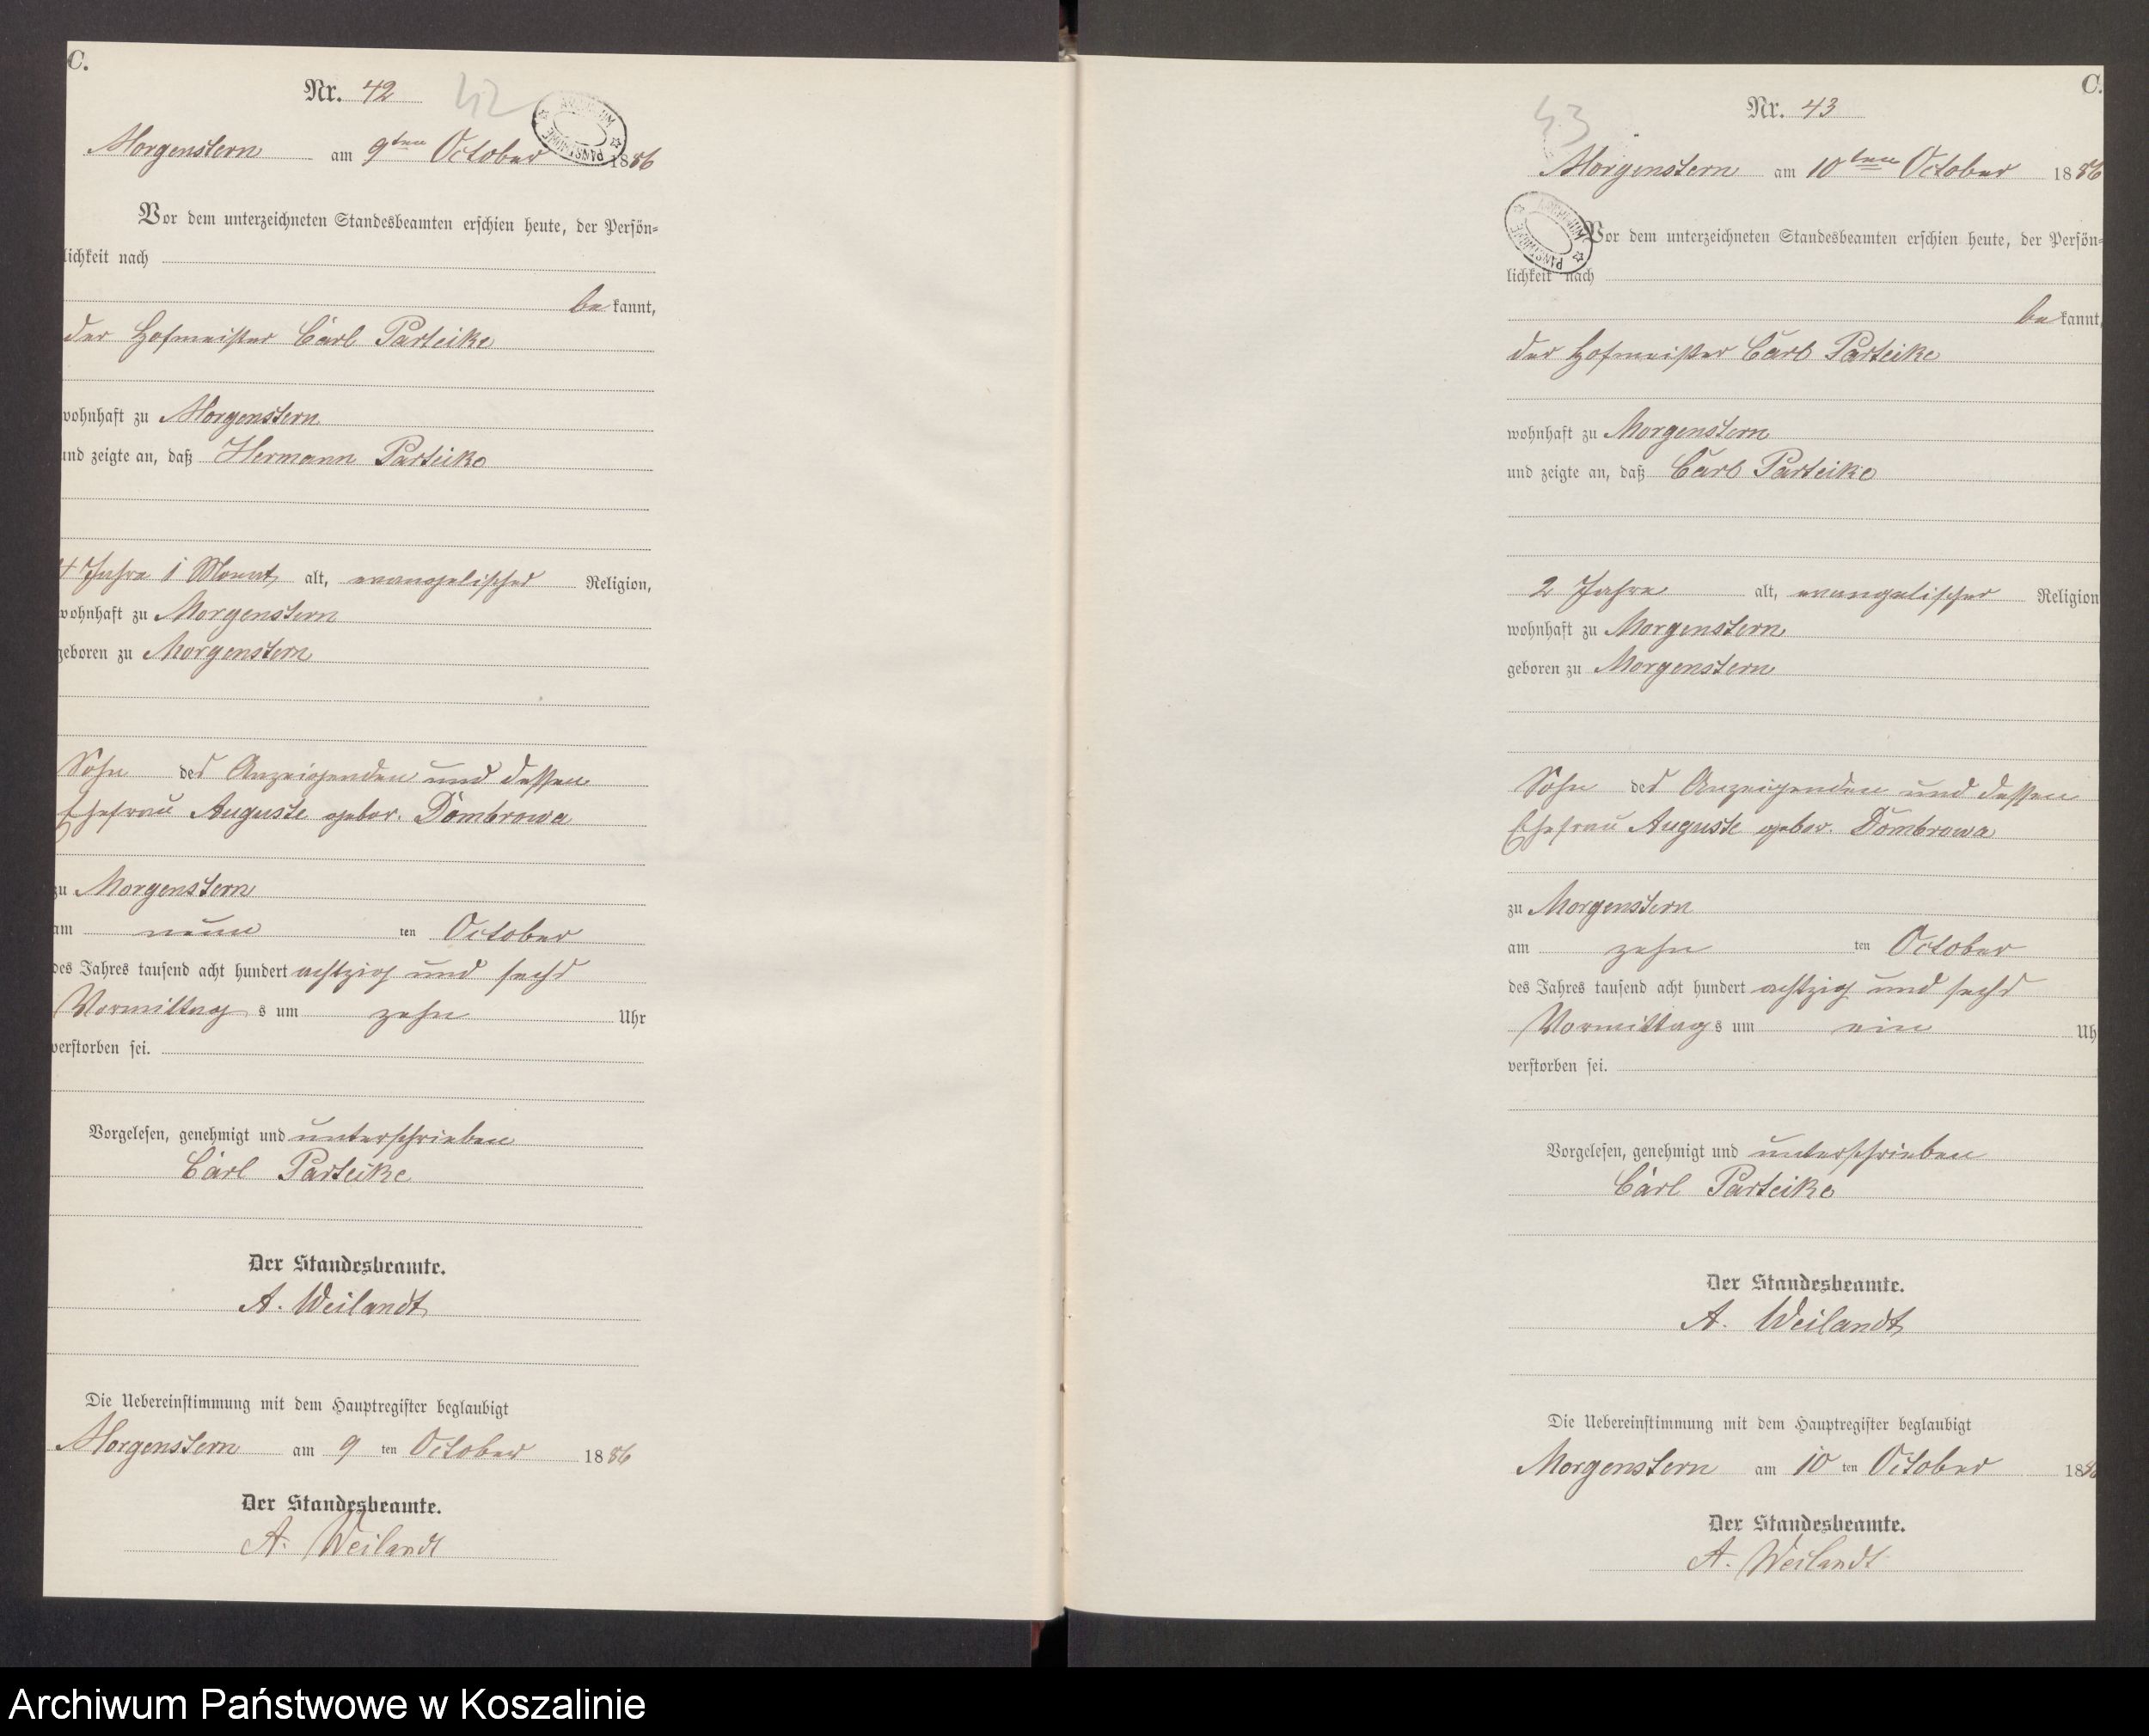 C.
Nr. 42
42
Morgenstern am 9ten October 1886
Vor dem unterzeichneten Standesbeamten erschien heute, der Persön=
lichkeit nach
be kannt,
der Hofmeister Carl Parteike
wohnhaft zu Morgenstern
und zeigte an, daß Hermann Parteike
4 Jahre 1 Monat alt, evangelischer Religion,
wohnhaft zu Morgenstern
geboren zu Morgenstern
Sohn des Anzeigenden und dessen
Ehefrau Auguste gebor. Dombrowa
zu Morgenstern
am neun ten October
des Jahres tausend acht hundert achtzig und sechs
Vormittag s um zehn Uhr
verstorben sei.
Vorgelesen, genehmigt und unterschrieben
Carl Parteike
Der Standesbeamte.
A. Weilandt
Die Uebereinstimmung mit dem Hauptregister beglaubigt
Morgenstern am 9 ten October 1886
Der Standesbeamte.
A. Weilandt
C.
Nr. 43
43
Morgenstern am 10ten October 1886
Vor dem unterzeichneten Standesbeamten erschien heute, der Persön=
lichkeit nach
be kannt,
der Hofmeister Carl Parteike
wohnhaft zu Morgenstern
und zeigte an, daß Carl Parteike
2 Jahre alt, evangelischer Religion
wohnhaft zu Morgenstern
geboren zu Morgenstern
Sohn des Anzeigenden und dessen
Ehefrau Auguste gebor. Dombrowa
zu Morgenstern
am zehn ten October
des Jahres tausend acht hundert achtzig und sechs
Vormittag s um ein Uh
verstorben sei.
Vorgelesen, genehmigt und unterschrieben
Carl Parteike
Der Standesbeamte.
A. Weilandt
Die Uebereinstimmung mit dem Hauptregister beglaubigt
Morgenstern am 10 ten October 1886
Der Standesbeamte.
A. Weilandt
Archiwum Państwowe w Koszalinie